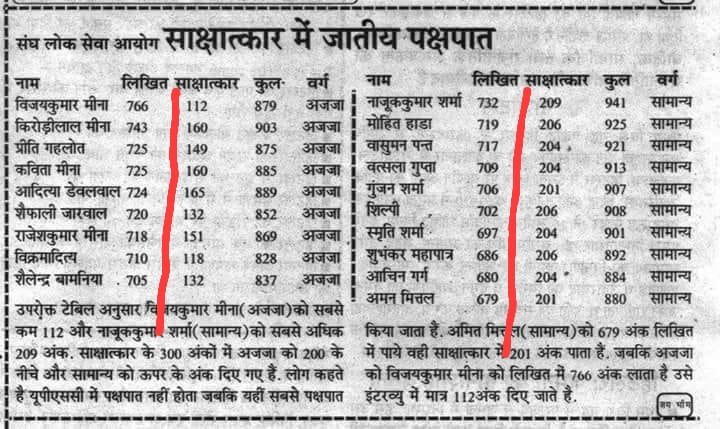 संघ लोक सेवा आयोग साक्षात्कार में जातीय पक्षपात
नाम लिखित साक्षात्कार कुल वर्ग
विजयकुमार मीना 766 112 879 अजजा
किरोड़ीलाल मीना 743 160 903 अजजा
प्रीति गहलोत 725 149 875 अजजा
कविता मीना 725 160 885 अजजा
आदित्या डेवलवाल 724 165 889 अजजा
शैफाली जारवाल 720 132 852 अजजा
राजेशकुमार मीना 718 151 869 अजजा
विक्रमादित्य 710 118 828 अजजा
शैलेन्द्र बामनिया 705 132 837 अजजा
उपरोक्त टेबिल अनुसार विजयकुमार मीना(अजजा) को सबसे
कम 112 और नाजूककुमार शर्मा(सामान्य) को सबसे अधिक
209 अंक. साक्षात्कार के 300 अंकों में अजजा को 200 के
नीचे और सामान्य को ऊपर के अंक दिए गए हैं. लोग कहते
है यूपीएससी में पक्षपात नहीं होता जबकि यहीं सबसे पक्षपात
नाम लिखित साक्षात्कार कुल वर्ग
नाजूककुमार शर्मा 732 209 941 सामान्य
मोहित हाडा 719 206 925 सामान्य
वासुमन पन्त 717 204 921 सामान्य
वत्सला गुप्ता 709 204 913 सामान्य
गुंजन शर्मा 706 201 907 सामान्य
शिल्पी 702 206 908 सामान्य
स्मृति शर्मा 697 204 901 सामान्य
शुभंकर महापात्र 686 206 892 सामान्य
आचिन गर्ग 680 204 884 सामान्य
अमन मित्तल 679 201 880 सामान्य
किया जाता है. अमित मित्तल(सामान्य) को 679 अंक लिखित
में पाये वही साक्षात्कार में 201 अंक पाता हैं. जबकि अजजा
को विजयकुमार मीना को लिखित में 766 अंक लाता है उसे
इंटरव्यु में मात्र 112अंक दिए जाते है.